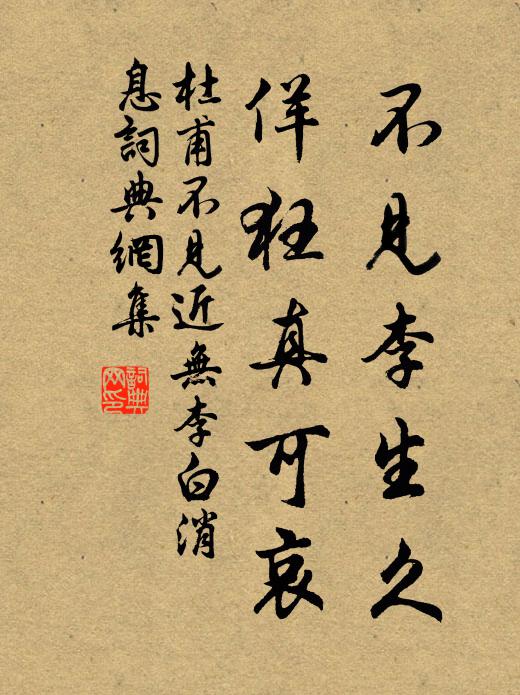 不見李生久
佯狂真可哀
杜甫不見近無李白消
息詞典網集
詞典
网印